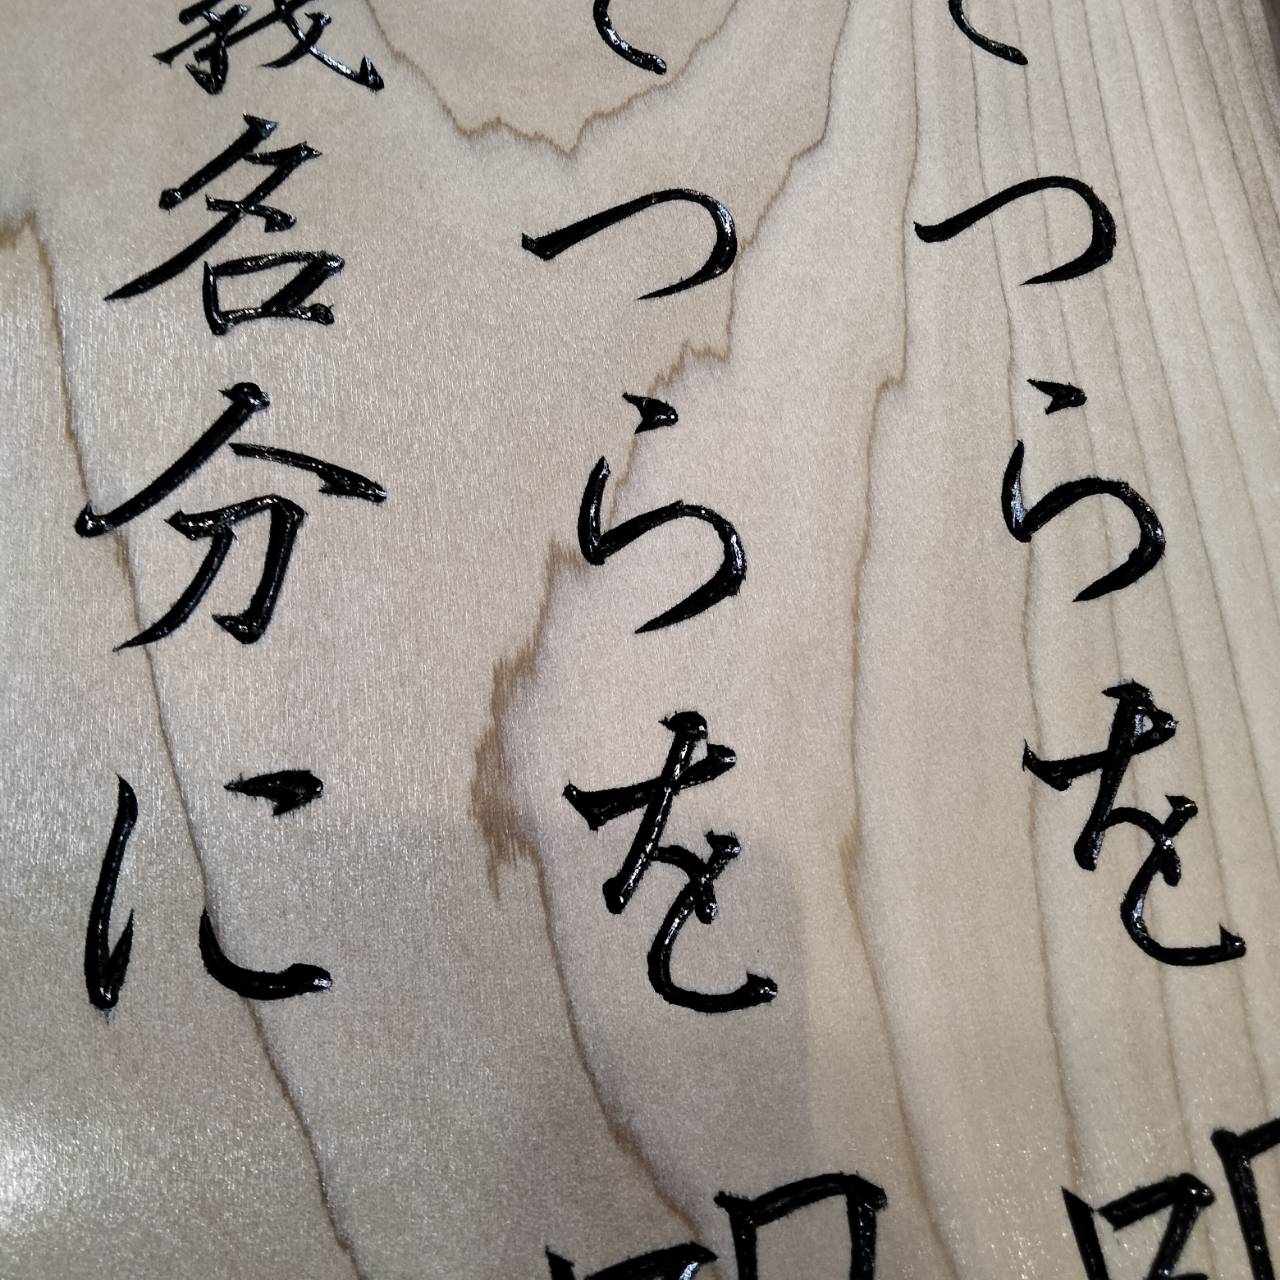 つらを明
つらを明
義名分に